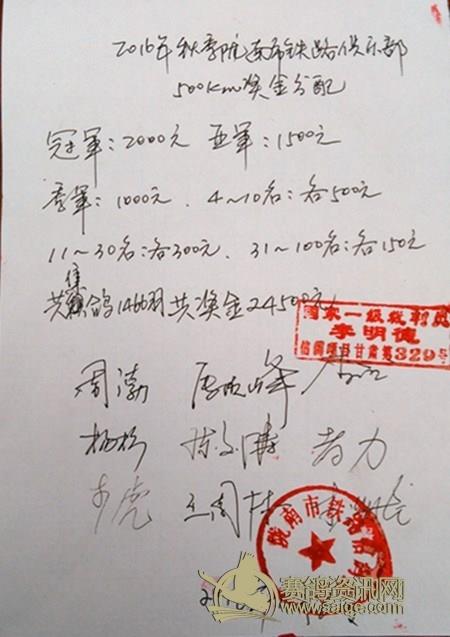 2016年秋季陇南市铁路俱乐部
500km奖金分配
冠军：2000元 亚军：1500元
季军：1000元、4～10名：各500元
11～30名：各300元、31～100名：各150元
共信鸽1466羽共奖金24500元
国家一级裁判员
李明德
信鸽项目甘肃第329号
周渤
杨彬
陇南市铁路信鸽
赛鸽资讯网
www.saige.com